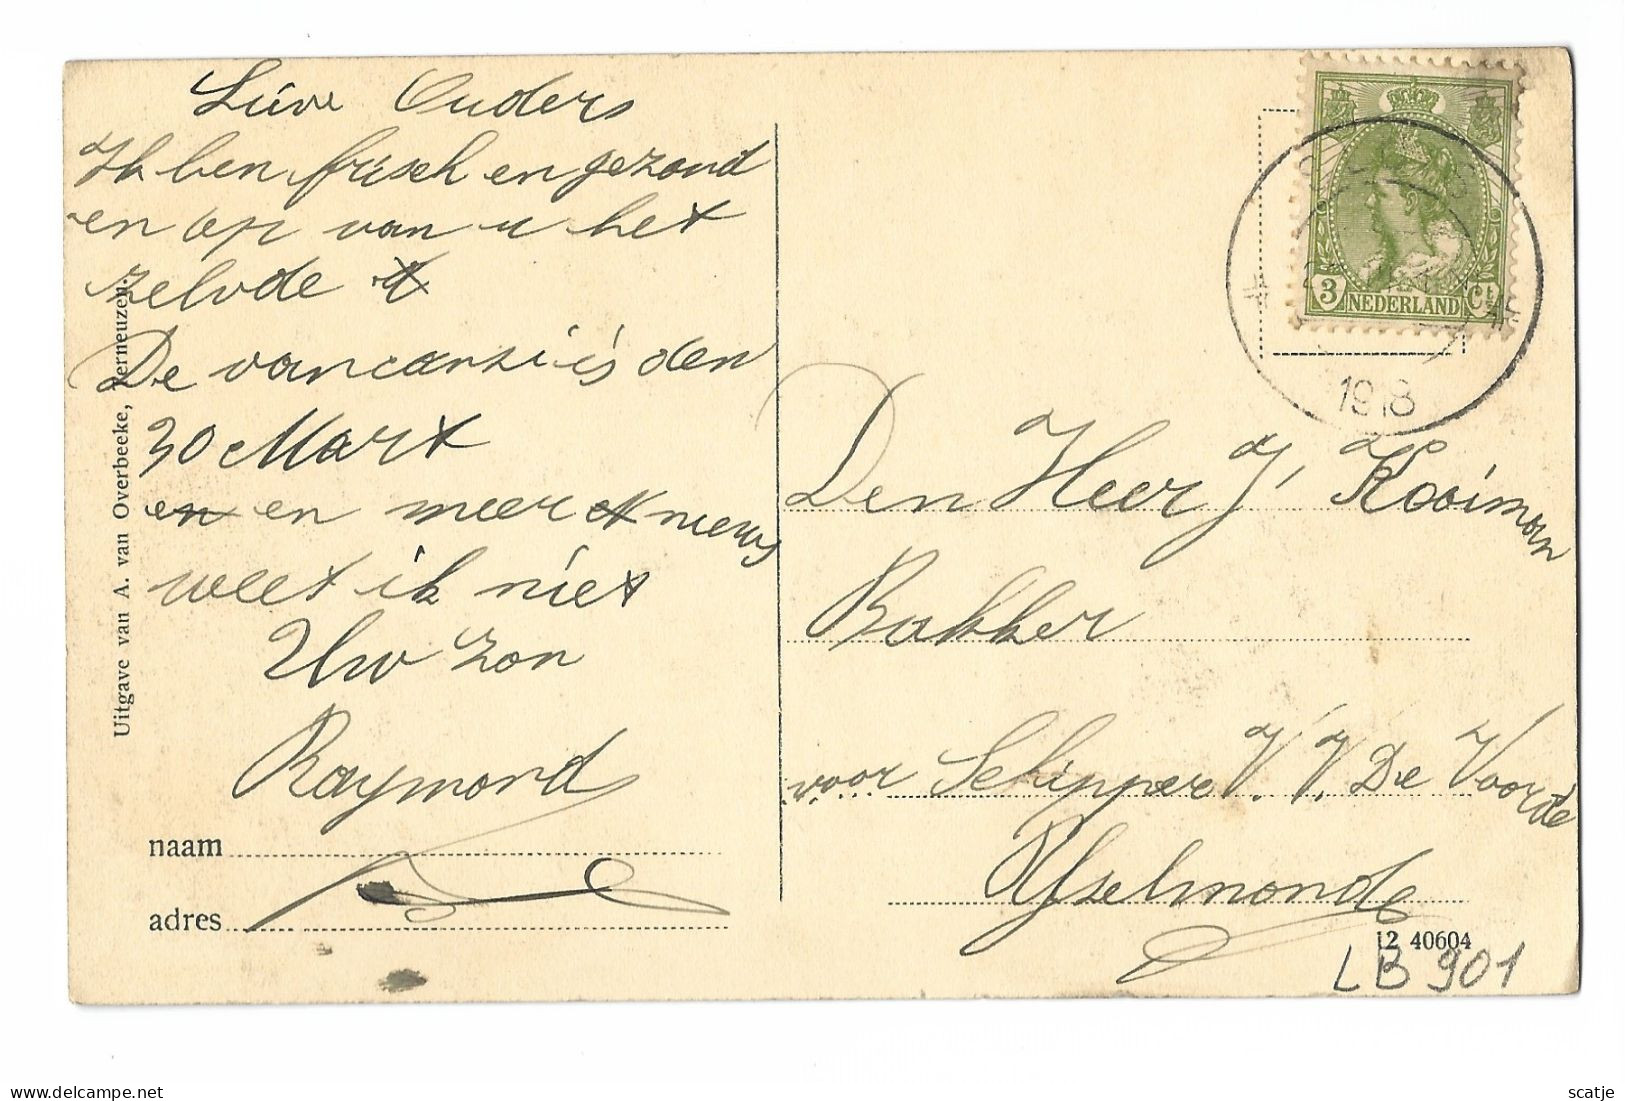 Lieve Ouders
Ik ben frisch en gezond
en op van u het
zelvde
De vancansi is den
30 Mart
en en meer nieuws
weet ik niet
Uw zon
Raymond
naam
adres
Uitgave van A. van Overbeeke, Terneuzen.
3 NEDERLAND Ct
1918
Den Heer J. Kooiman
Bakker
voor Schipper V. V. De Voorde
IJselmonde
12 40604
LB 901
scatje